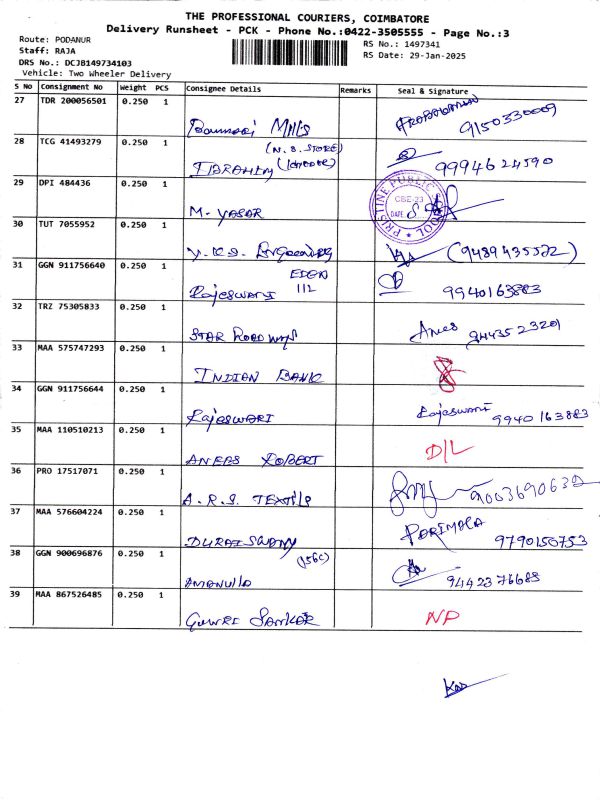 THE PROFESSIONAL COURIERS, COIMBATORE
Delivery Runsheet - PCK - Phone No.:0422-3505555 - Page No.:3
Route: PODANUR
RS No.: 1497341
Staff: RAJA
RS Date: 29-Jan-2025
DRS No.: DCJB149734103
Vehicle: Two Wheeler Delivery
S No Consignment No Weight PCS Consignee Details Remarks Seal & Signature
27 TDR 200056501 0.250 1
Mills 9150330009
28 TCG 41493279 0.250 1 (N.S. STORE)
IBRAHIM 9994624590
29 DPI 484436 0.250 1
M. YASAR
PRISTINE PUBLIC SCHOOL CBE-23 DATE
30 TUT 7055952 0.250 1
V.K.S. (9489435522)
31 GGN 911756640 0.250 1 EDEN
Rajeswari 112 9940163883
32 TRZ 75305833 0.250 1
STAR ROADWAYS Anees 9443523201
33 MAA 575747293 0.250 1
INDIAN BANK
34 GGN 911756644 0.250 1
RAJESWARI Rajeswari 9940163883
35 MAA 110510213 0.250 1
ANEES ROBERT D/L
36 PRO 17517071 0.250 1
A.R.S. TEXTILS 9003690632
37 MAA 576604224 0.250 1
DURAISWAMY PARIMALA 9790150753
38 GGN 900696876 0.250 1 (156C)
AMANULLA 9442376688
39 MAA 867526485 0.250 1
GUWRI SANKAR NP